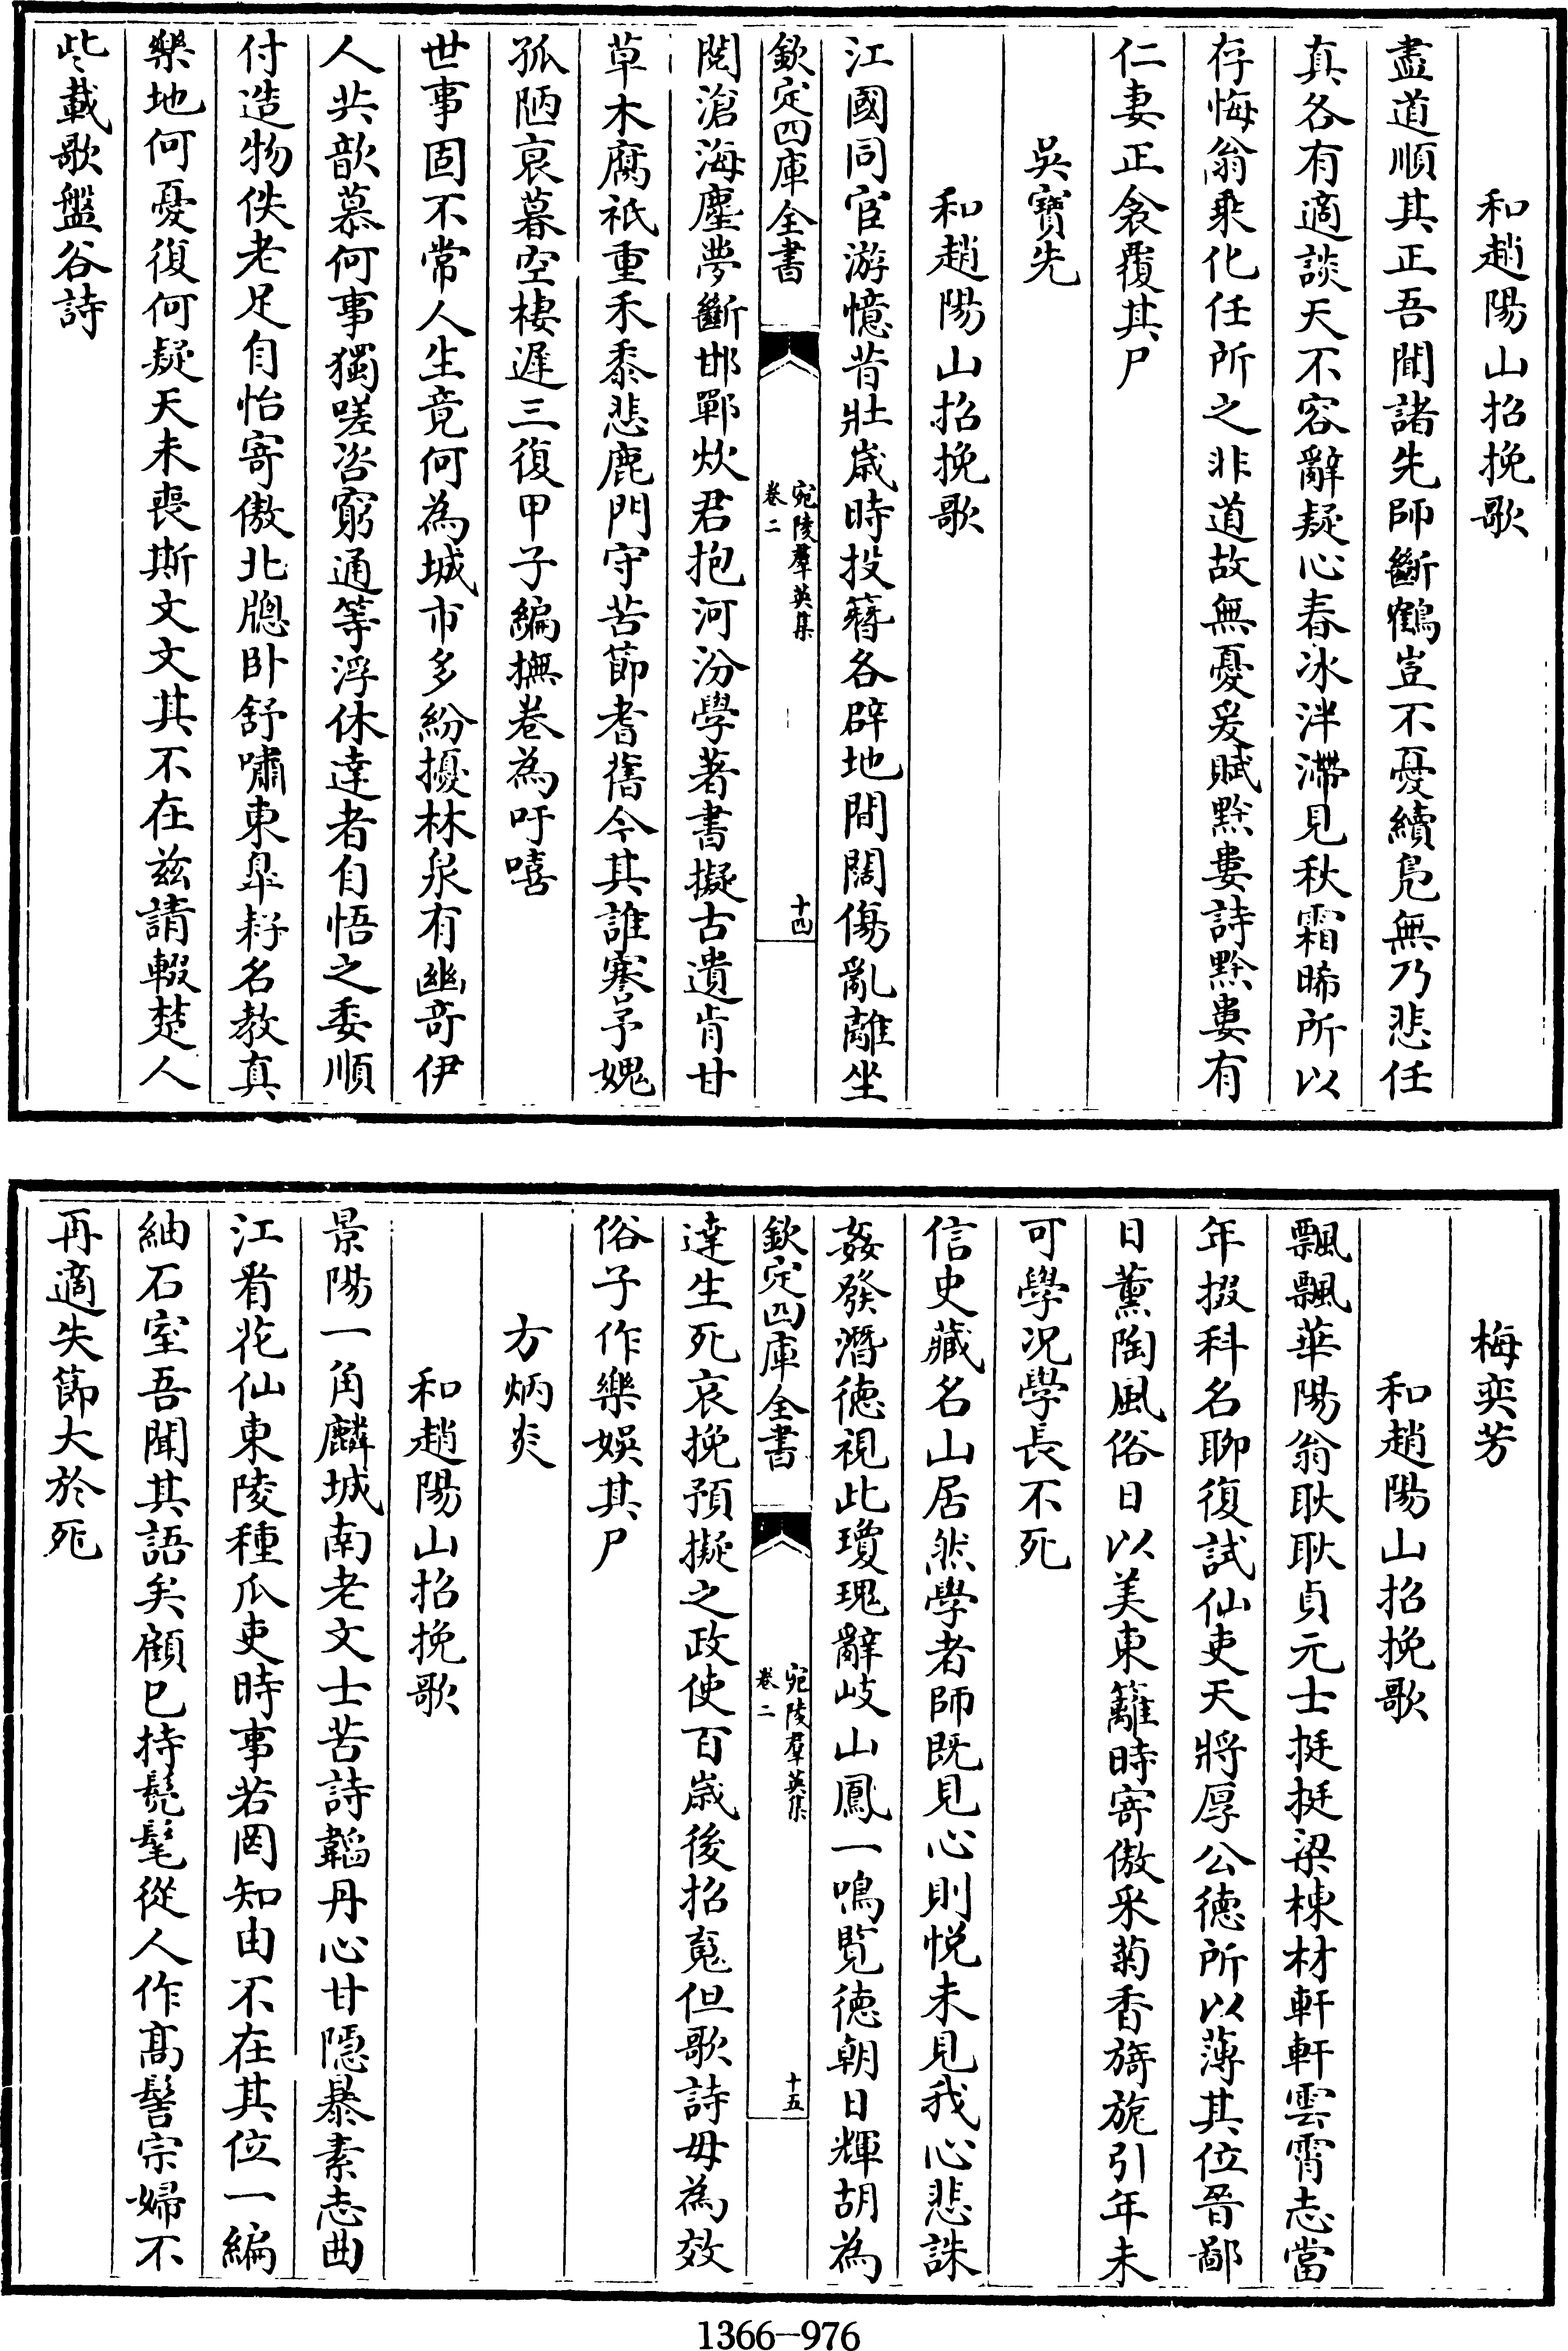 和趙陽山招挽歌
盡道順其正吾聞諸先師斷鶴豈不憂續鳬無乃悲任
真各有適談天不容辭疑心春冰泮滯見秋霜晞所以
存悔翁乘化任所之非道故無憂爰賦黔婁詩黔婁有
仁妻正衾覆其尸
吳寶先
和趙陽山招挽歌
江國同宦游憶昔壯歳時投簪各辟地間闊傷亂離坐
欽定四庫全書
宛陵羣英集
卷二
十四
閱滄海塵夢斷邯鄲炊君抱河汾學著書擬古遺肯甘
草木腐祇重禾黍悲鹿門守苦節耆舊今其誰寒予媿
孤陋哀暮空棲遲三復甲子編撫卷為吁嘻
世事固不常人生竟何為城市多紛擾林泉有幽奇伊
人共歆慕何事獨嗟咨窮通等浮休達者自悟之委順
付造物佚老足自怡寄傲北牕卧舒嘯東臯耔名教真
樂地何憂復何疑天未喪斯文文其不在兹請輟楚人
些載歌盤谷詩
梅奕芳
和趙陽山招挽歌
飄飄華陽翁耿耿貞元士挺挺梁棟材軒軒雲霄志當
年掇科名聊復試仙吏天將厚公德所以薄其位晉鄙
日薰陶風俗日以美東籬時寄傲采菊香旖旎引年未
可學况學長不死
信史藏名山居然學者師既見心則悦未見我心悲誅
姦發潛徳視此瓊瑰辭岐山鳳一鳴覽徳朝日輝胡為
欽定四庫全書
宛陵羣英集
卷二
十五
達生死哀挽預擬之政使百歳後招䰟但歌詩毋為效
俗子作樂娛其尸
方炳炎
和趙陽山招挽歌
景陽一角麟城南老文士苦詩韜丹心甘隱暴素志曲
江肴花仙東陵種瓜吏時事若罔知由不在其位一編
紬石室吾聞其語矣顧已持髡髦從人作髙髻宗婦不
再適失節大於死
1366—976